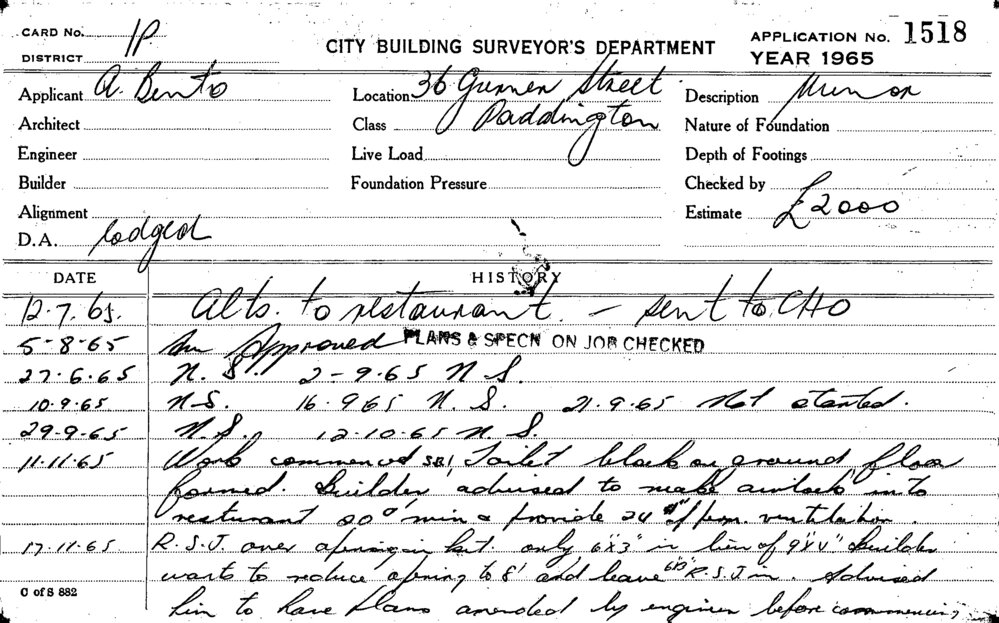 CARD No. 1P.
CITY BUILDING SURVEYOR'S DEPARTMENT
APPLICATION No. 1518
DISTRICT
YEAR 1965
Applicant A. Bento
Location 36 Gurner Street
Description Minor
Architect
Class Paddington
Nature of Foundation
Engineer
Live Load
Depth of Footings
Builder
Foundation Pressure
Checked by
Alignment
Estimate £2000
D.A. lodged
DATE
HISTORY
12.7.65. Alts. to restaurant. - sent to CHO
5-8-65 Approved PLANS & SPECN ON JOB CHECKED
27.6.65 N.S. 2-9.65 N.S.
10.9.65 N.S. 16.9.65 N.S. 21.9.65 Not started.
29.9.65 N.S. 12-10.65 N.S.
11.11.65 Work commenced Toilet block on ground floor
formed. Builder advised to make airlock into
resturant min & provide ventilation.
17.11.65 R.S.J. over opening in kit. only 6"x3" in lieu of 9"x4" Builder
wants to reduce opening to 8' and leave 6x3 R.S.J in. Advised
him to have plans amended by engineer before commencing
C of S 882